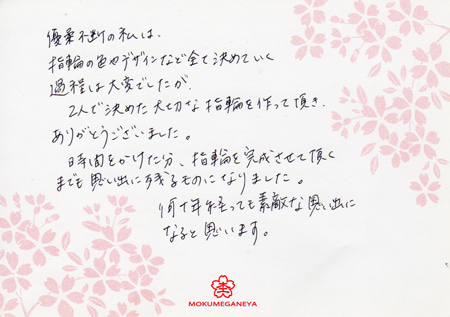 優柔不断の私は、
指輪の色やデザインなど全て決めていく
過程は大変でしたが、
2人で決めた大切な指輪を作って頂き、
ありがとうございました。
時間をかけた分、指輪を完成させて頂く
までも思い出に残るものになりました。
何十年経っても素敵な思い出に
なると思います。
MOKUMEGANEYA